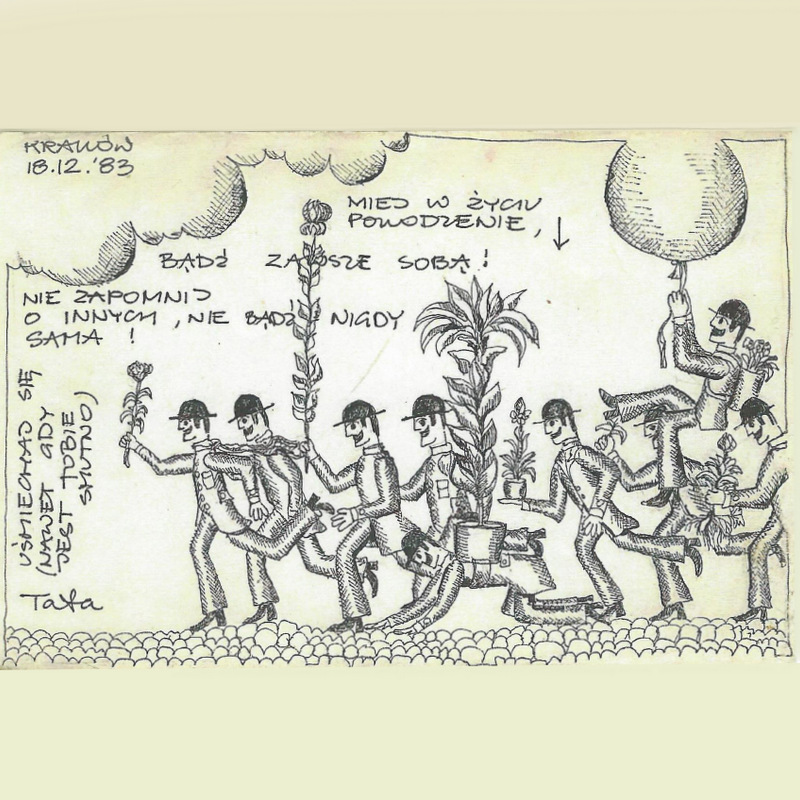 KRAKÓW
18.12.'83
MIEJ W ŻYCIU
POWODZENIE,
BĄDŹ ZAWSZE SOBĄ!
NIE ZAPOMNIJ
O INNYCH, NIE BĄDŹ NIGDY
SAMA!
UŚMIECHAJ SIĘ
(NAWET GDY
JEST TOBIE
SMUTNO)
Tata